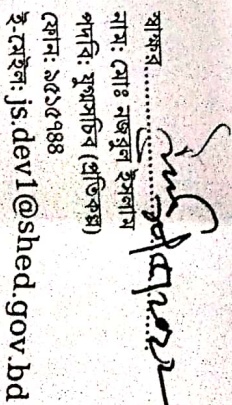 স্বাক্ষর..............................
নাম: মোঃ নজরুল ইসলাম
পদবি: যুগ্মসচিব (প্রতিকল্প)
ফোন: ৯৫১৫৭৪৪
ই-মেইল: js.dev1@shed.gov.bd